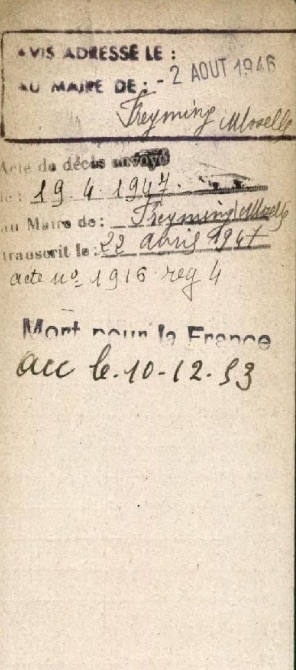 AVIS ADRESSÉ LE :
AU MAIRE DE : - 2 AOUT 1946
Freyming Moselle
Acte de décès envoyé
le : 19.4.1947.
au Maire de : Freyming Moselle
transcrit le : 22 avril 1947
acte nº 1916 reg 4
Mort pour la France
acc le 10-12-53